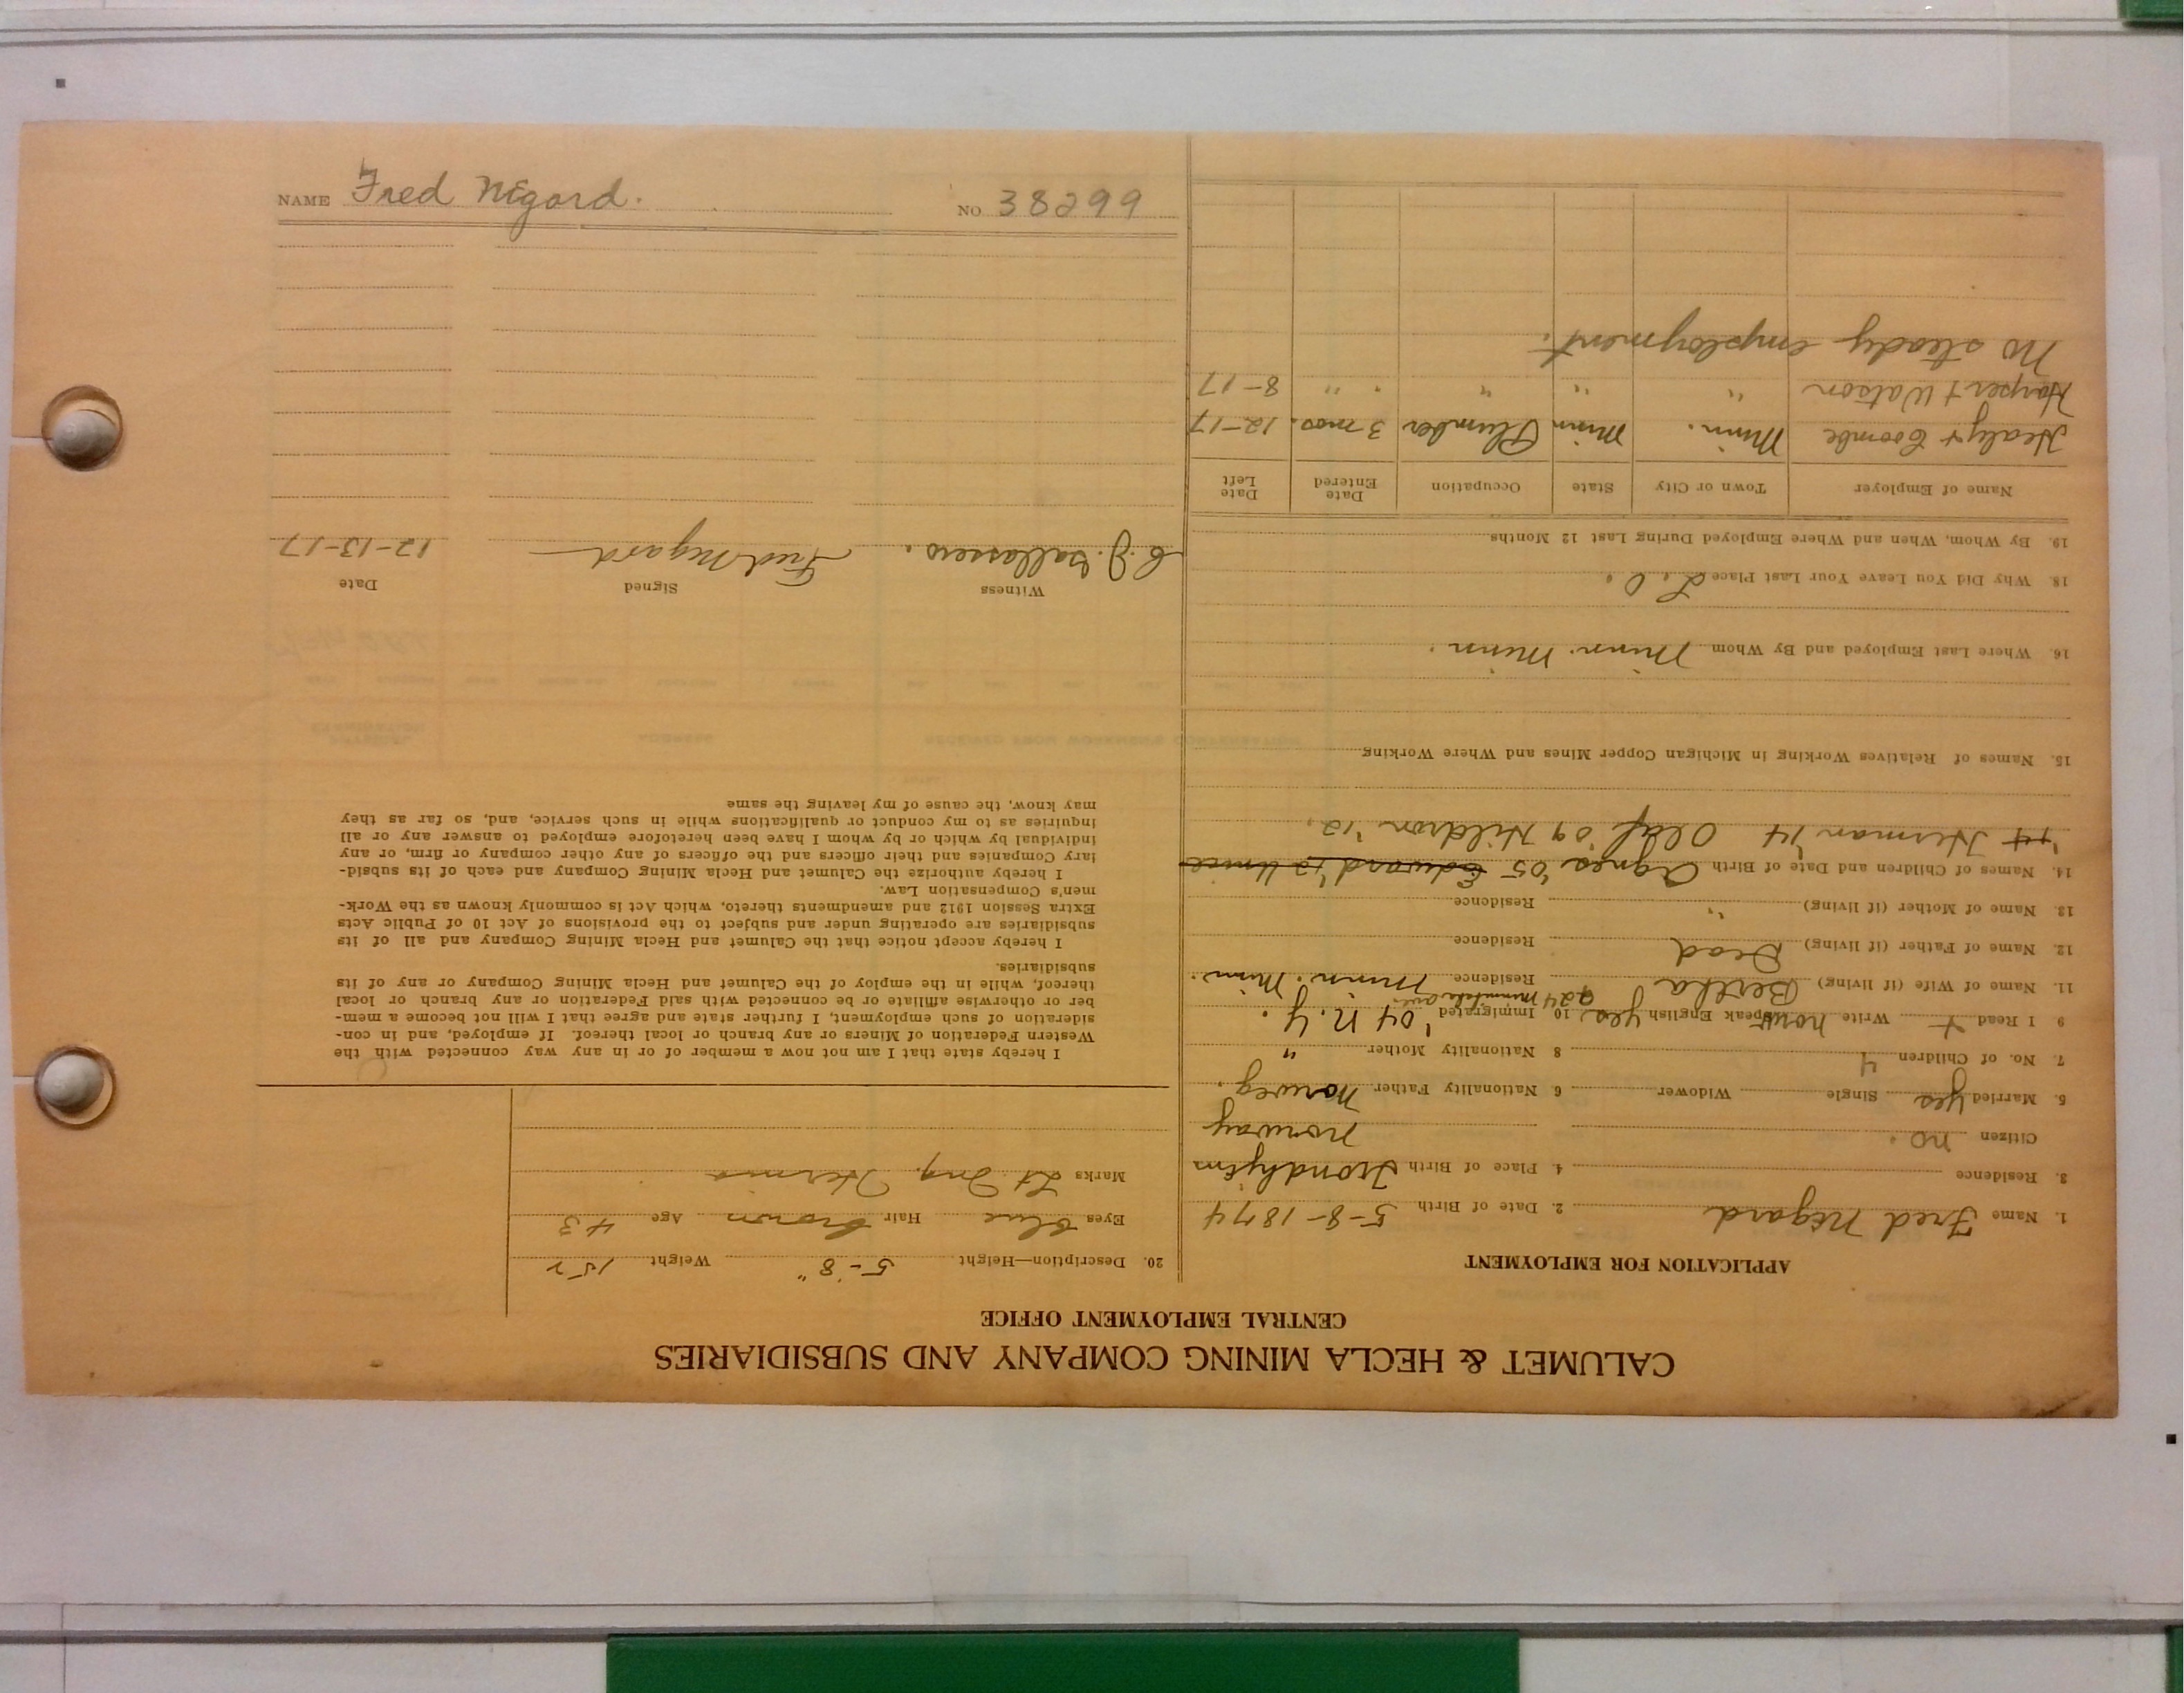 CALUMET & HECLA MINING COMPANY AND SUBSIDIARIES
CENTRAL EMPLOYMENT OFFICE
APPLICATION FOR EMPLOYMENT
1. Name Fred Negard 2. Date of Birth 5-8-1874
3. Residence 4. Place of Birth Trondhjem
Citizen no. Norway
5. Married yes Single Widower 6 Nationality Father Norweg.
7. No. of Children 4 8 Nationality Mother "
9 I Read + Write norw Speak English yes 10 Immigrated '04 N.Y.
924 Minnehaha ave
11. Name of Wife (if living) Bertha Residence Minn. Minn.
12. Name of Father (if living) Dead Residence
13. Name of Mother (if living) " Residence
14. Names of Children and Date of Birth Agnes '05 Edward '12
'14 Herman '14 Olaf '09 Hildron '12.
15. Names of Relatives Working in Michigan Copper Mines and Where Working
16. Where Last Employed and By Whom Minn. Minn.
18. Why Did You Leave Your Last Place L.O.
19. By Whom, When and Where Employed During Last 12 Months
Name of Employer Town or City State Occupation Date Entered Date Left
Healy + Coombe Minn. Minn Plumber 3 mos. 12-17
Harper + Watson " " " " " 8-17
No steady employment.
20. Description—Height 5-8" Weight 152
Eyes blue Hair brown Age 43
Marks Lt Ing. Hernia
I hereby state that I am not now a member of or in any way connected with the
Western Federation of Miners or any branch or local thereof. If employed, and in con-
sideration of such employment, I further state and agree that I will not become a mem-
ber or otherwise affiliate or be connected with said Federation or any branch or local
thereof, while in the employ of the Calumet and Hecla Mining Company or any of its
subsidiaries.
I hereby accept notice that the Calumet and Hecla Mining Company and all of its
subsidiaries are operating under and subject to the provisions of Act 10 of Public Acts
Extra Session 1912 and amendments thereto, which Act is commonly known as the Work-
men's Compensation Law.
I hereby authorize the Calumet and Hecla Mining Company and each of its subsid-
iary Companies and their officers and the officers of any other company or firm, or any
individual by which or by whom I have been heretofore employed to answer any or all
inquiries as to my conduct or qualifications while in such service, and, so far as they
may know, the cause of my leaving the same
Witness Signed Date
C. J. Fred Negard 12-13-17
NAME Fred Negard. NO 38299